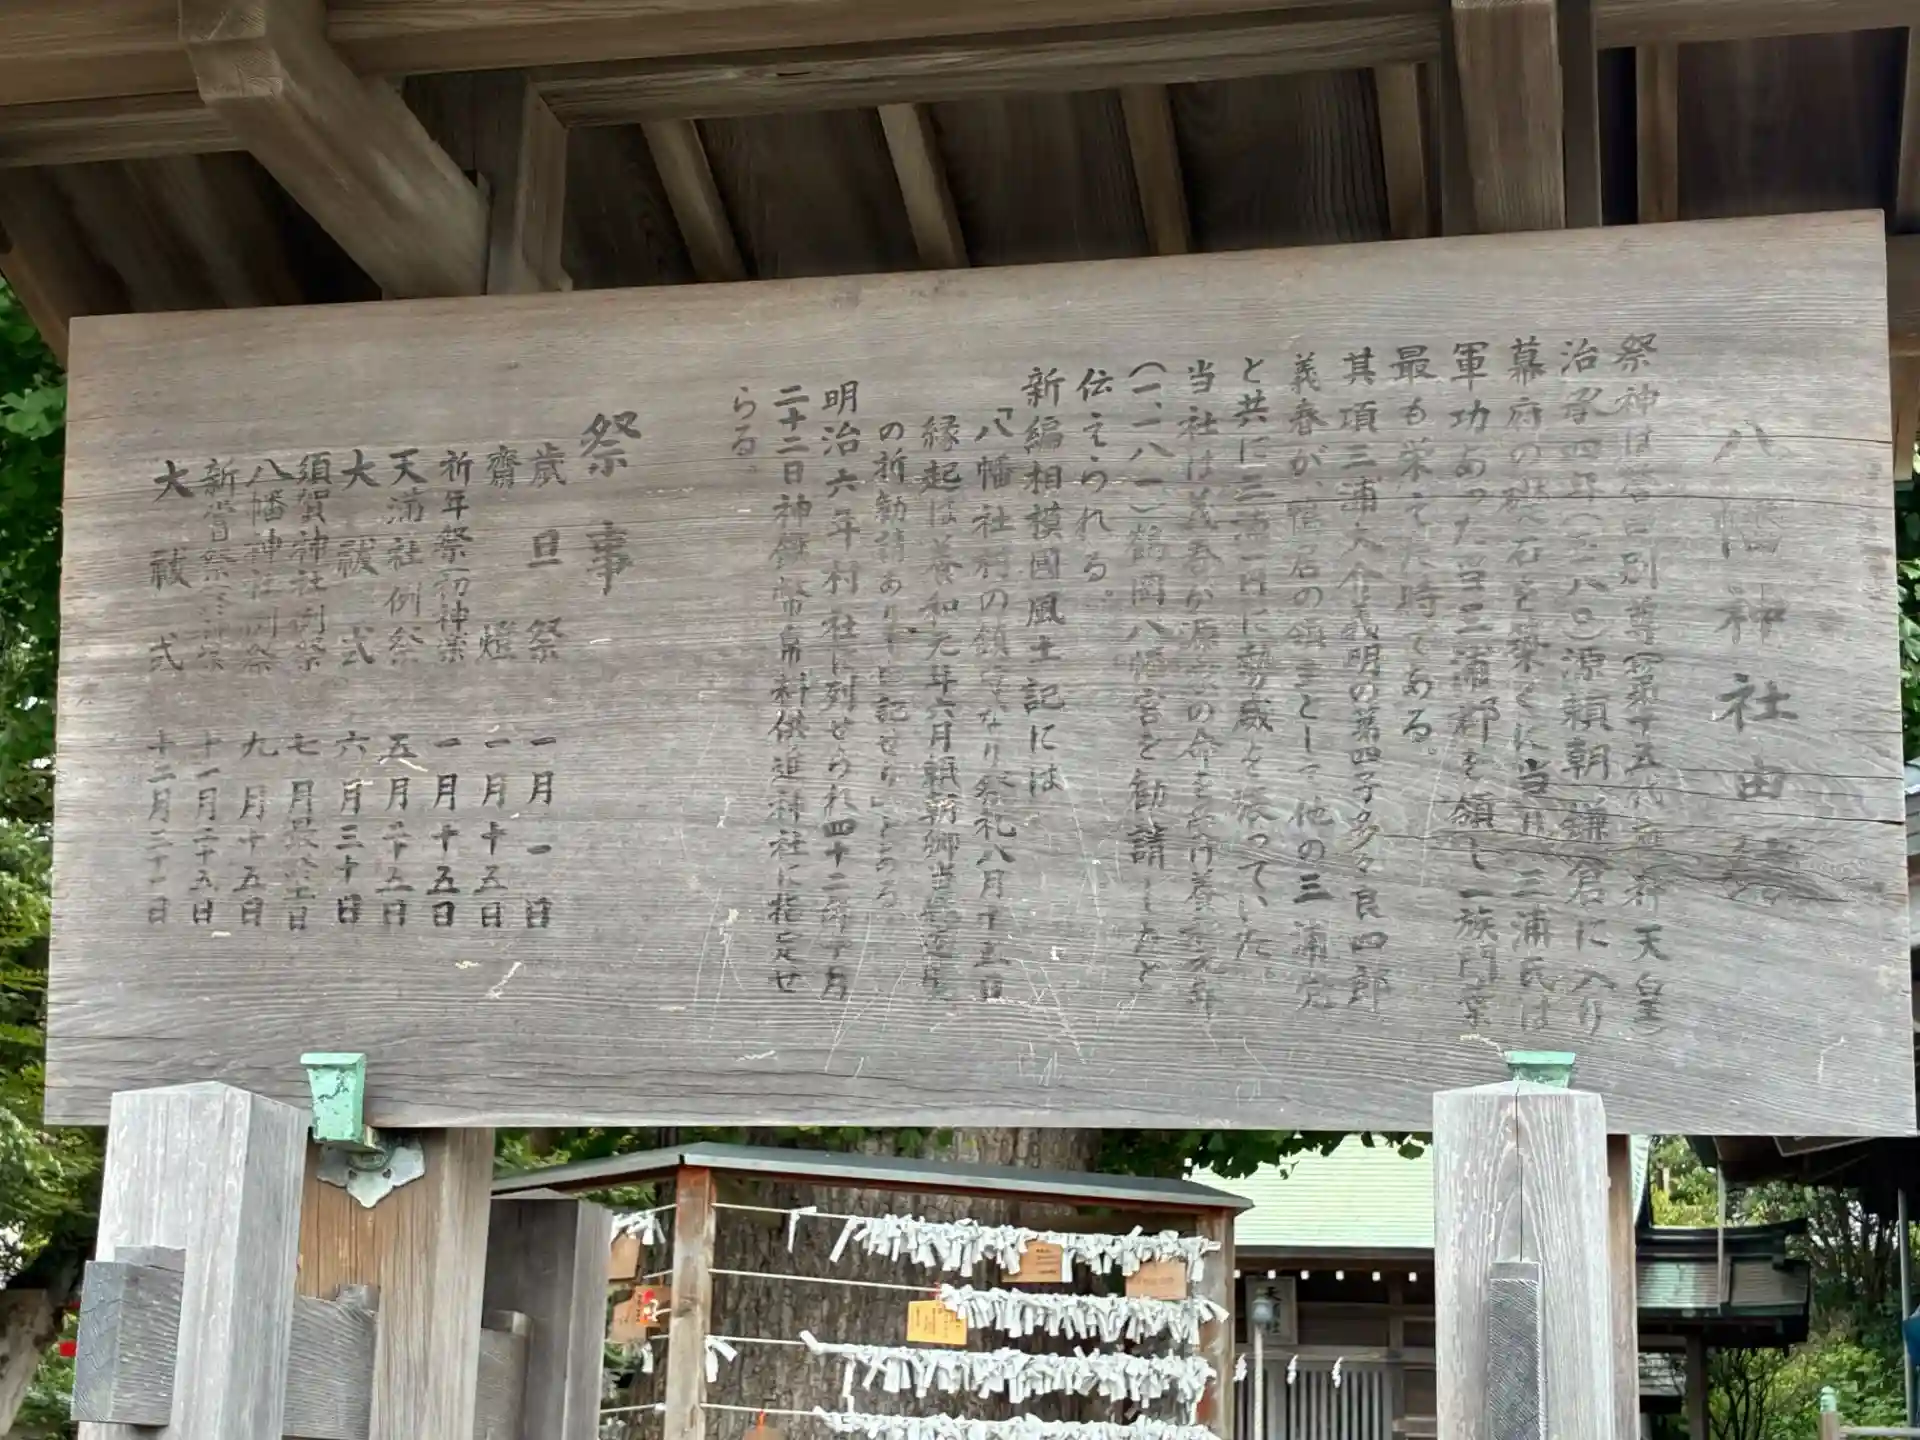 八幡神社由緒
祭神は誉田別尊(第十五代應神天皇)
治承四年(一一八〇)源頼朝鎌倉に入り
幕府の礎石を築くに当り三浦氏は
軍功あった当三浦郡を領し一族門葉
最も栄えた時である。
其項三浦大介義明の第四子多々良四郎
義春が、鴨居の領主として他の三浦党
と共に三浦一円に勢威を張っていた。
当社は義春が源頼朝の命をうけ養和元年
(一一八一)鶴岡八幡宮を勧請したと
伝えられる。
新編相模國風土記には
「八幡社村の鎮守なり祭礼八月十五日
縁起は養和元年六月頼朝郷当
の祈勧請ありしと記せり」とある。
明治六年村社に列せられ四十二年十月
二十二日神饌幣帛料供進神社に指定せ
らる。
祭事
歳旦祭 一月一日
齋燈 一月十五日
祈年祭初神楽 一月十五日
天満社例祭 五月二十五日
大祓式 六月三十日
須賀神社例祭 七月最終土日
八幡神社例祭 九月十五日
新嘗祭 十一月二十五日
大祓式 十二月三十一日